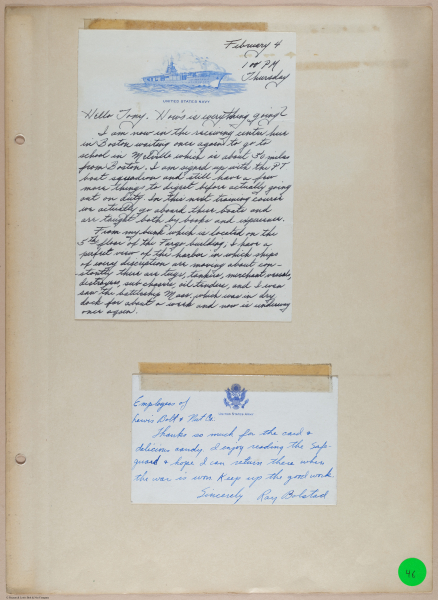 February 4
1 00 PM
Thursday
UNITED STATES NAVY
Hello Tony. How's is everything going?
I am now in the receiving centre here
in Boston waiting once again to go to
school in Melville which is about 50 miles
from Boston. I am signed up with the P.T.
boat squadron and still have a few
more things to digest before actually going
out on duty. In this next training course
we actually go aboard these boats and
are taught both by books and experience.
From my bunk which is located on the
5th floor of the Fargo building, I have a
perfect view of the harbor in which ships
of every discription are moving about con-
stantly. There are tugs, tankers, merchant vessels,
destroyers, sub chasers, oil tenders, and I even
saw the battleship Mass. which was in dry
dock for about a week and now is underway
once again.
UNITED STATES NAVY
Employees of
Lewis Bolt & Nut Co.
Thanks so much for the card &
delicious candy. I enjoy reading the Safe-
guard & hope I can return there when
the war is won. Keep up the good work.
Sincerely Ray Bolstad
46